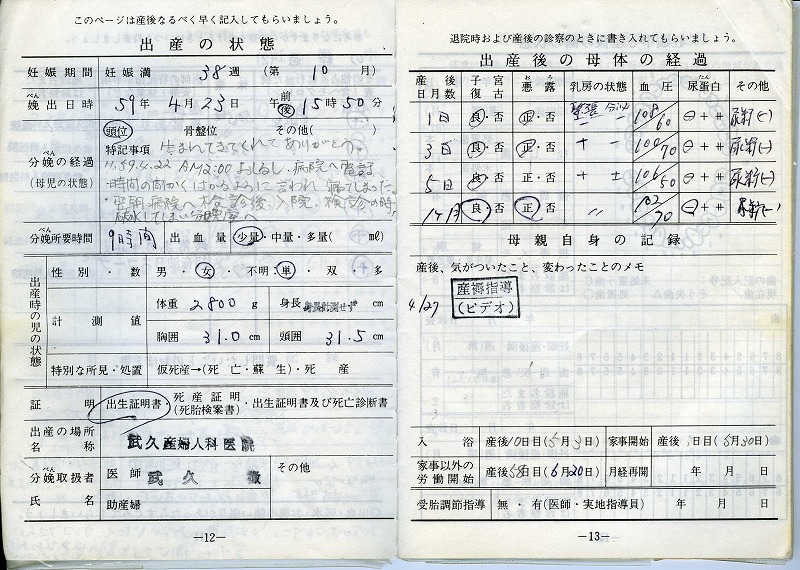 このページは産後なるべく早く記入してもらいましょう。
出産の状態
妊娠期間 妊娠満 38週 (第 10 月)
娩出日時 59年 4月 23日 午前後 15時 50分
分娩の経過 (母児の状態) 頭位 骨盤位 その他( )
特記事項 生まれてきてくれてありがとう。
S.59.4.22 AM2:00 おしるし.病院へ電話
・時間の間かくはかるように言われ
・翌朝.病院へ 検診後.入院. 検診の時
破水してしまい
分娩所要時間 9時間 出血量 少量・中量・多量( ml)
出産時の児の状態
性別・数 男・女・不明:単・双・多
計測値 体重 2800 g 身長 身長計測せず cm
胸囲 31.0 cm 頭囲 31.5 cm
特別な所見・処置 仮死産→(死亡・蘇生)・死産
証明 出生証明書・死産証明(死胎検案書)・出生証明書及び死亡診断書
出産の場所 名称 武久産婦人科医院
分娩取扱者 氏名 医師 武久 徹 その他
助産婦
—12—
退院時および産後の診察のときに書き入れてもらいましょう。
出産後の母体の経過
産後日月数 子宮復古 悪露 乳房の状態 血圧 尿蛋白 その他
1日 良・否 良・否 緊張 分泌 108/60 −+++ 尿糖(−)
3日 良・否 正・否 + + 100/70 −+++ 尿糖(−)
5日 良・否 正・否 ± + 106/50 −+++ 尿糖(−)
良・否 正・否 〃 102/70 −+++ 尿糖(−)
母親自身の記録
産後、気がついたこと、変わったことのメモ
4/27 産褥指導
(ビデオ)
入浴 産後10日目(5月3日) 家事開始 産後 日目(5月30日)
家事以外の労働開始 産後58日目(6月20日) 月経再開 年 月 日
受胎調節指導 無・有(医師・実地指導員) 年 月 日
—13—